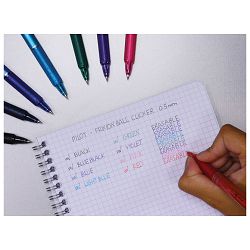 PILOT - FRIXION BALL CLICKER 0.5mm
BLACK
BLUE BLACK
BLUE
LIGHT BLUE
GREEN
VIOLET
PINK
RED
ERASABLE
ERASABLE
ERASABLE
ERASABLE
ERASABLE
ERASABLE